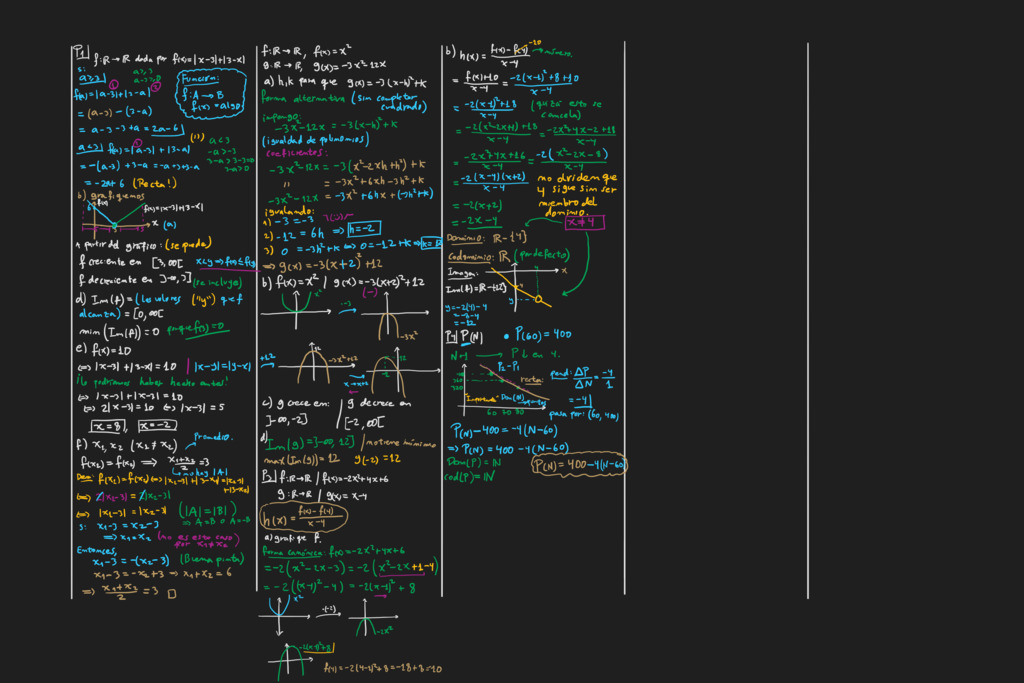 P1 f: ℝ → ℝ dada por f(x) = |x-3|+|3-x|
s:
a≥3
a≥3
a-3≥0
Función:
f: A → B
f(x) = algo
f(a) = |a-3|+|3-a|
= (a-3) - (3-a)
= a-3-3+a = 2a-6
a<3 f(a) = |a-3| + |3-a|
a<3
-a>-3
3-a>3-3=0
= -(a-3)+3-a = -a+3+3-a
= -2a+6 (Recta!)
b) grafiquemos
f(x)
f(x)=|x-3|+|3-x|
x (a)
A partir del gráfico: (se puede)
f creciente en [3,∞[ x≤y ⟹ f(x)≤f(y)
f decreciente en ]-∞,3] (se incluye)
d) Im(f) = (Los valores ("y") que f
alcanza) = [0,∞[
min(Im(f)) = 0 porque f(3)=0
e) f(x)=10
⟺ |x-3|+|3-x| = 10 | |x-3|=|3-x|
¡Lo podríamos haber hecho antes!
⟺ |x-3|+|x-3| = 10
⟺ 2|x-3| = 10 ⟺ |x-3| = 5
x=8, x=-2
f) x₁, x₂ (x₁≠x₂) promedio.
f(x₁) = f(x₂) ⟹ (x₁+x₂)/2 = 3
Dem: f(x₁)=f(x₂) ⟺ |x₁-3|+|3-x₁| = |x₂-3|
+|3-x₂|
⟺ 2|x₁-3| = 2|x₂-3|
⟺ |x₁-3| = |x₂-3| (|A|=|B|)
⟹ A=B o A=-B
s: x₁-3 = x₂-3
⟹ x₁=x₂ (no es este caso
por x₁≠x₂)
Entonces,
x₁-3 = -(x₂-3) (Buena pinta)
x₁-3 = -x₂+3 ⟹ x₁+x₂ = 6
⟹ (x₁+x₂)/2 = 3 □
f: ℝ → ℝ, f(x) = x²
g: ℝ → ℝ, g(x) = -3x²-12x
a) h,k para que g(x) = -3(x-h)²+k
forma alternativa (sin completar
cuadrado)
impongo:
-3x²-12x = -3(x-h)²+k
(igualdad de polinomios)
coeficientes:
-3x²-12x = -3(x²-2xh+h²)+k
" = -3x²+6xh-3h²+k
-3x²-12x = -3x²+6hx+(-3h²+k)
igualando:
1) -3 = -3
2) -12 = 6h ⟹ h=-2
3) 0 = -3h²+k ⟺ 0 = -12+k ⟹ k=12
⟹ g(x) = -3(x+2)²+12
b) f(x)=x² / g(x)=-3(x+2)²+12
x²
(-)
-3x²
+12
12
-3x²+12
12
-2
c) g crece en: / g decrece en
]-∞,-2] [-2,∞[
d) Im(g) = ]-∞,12] / no tiene mínimo
max(Im(g)) = 12 g(-2) = 12
f: ℝ→ℝ / f(x) = -2x²+4x+6
g: ℝ→ℝ / g(x) = x-4
h(x) = (f(x)-f(4))/(x-4)
a) grafique f.
Forma canónica: f(x) = -2x²+4x+6
= -2(x²-2x-3) = -2(x²-2x+1-4)
= -2((x-1)²-4) = -2(x-1)²+8
x²
·(-2)
-2x²
-2(x-1)²+8
f(4) = -2(4-1)²+8 = -18+8 = -10
b) h(x) = (f(x)-f(4))/(x-4) -10 número.
= (f(x)+10)/(x-4) = (-2(x-1)²+8+10)/(x-4)
= (-2(x-1)²+18)/(x-4) (quizá esto se
cancela)
= (-2(x²-2x+1)+18)/(x-4) = (-2x²+4x-2+18)/(x-4)
= (-2x²+4x+16)/(x-4) = (-2(x²-2x-8))/(x-4)
= (-2(x-4)(x+2))/(x-4) no olviden que
4 sigue sin ser
miembro del
dominio.
= -2(x+2)
= -2x-4 x≠4
Dominio: ℝ-{4}
Codominio: ℝ (por defecto)
Imagen:
Im(h)=ℝ-{-12}
x
4
y
y=-2(4)-4
=-8-4
=-12
P4 P(N) • P(60)=400
N+1 → P ↓ en 4.
P₂-P₁
recta:
pend: ΔP/ΔN = -4/1
= -4
pasa por: (60,400)
P(N)-400 = -4(N-60)
⟹ P(N) = 400-4(N-60)
Dom(P)=ℕ
cod(P)=ℕ
P(N) = 400-4(N-60)